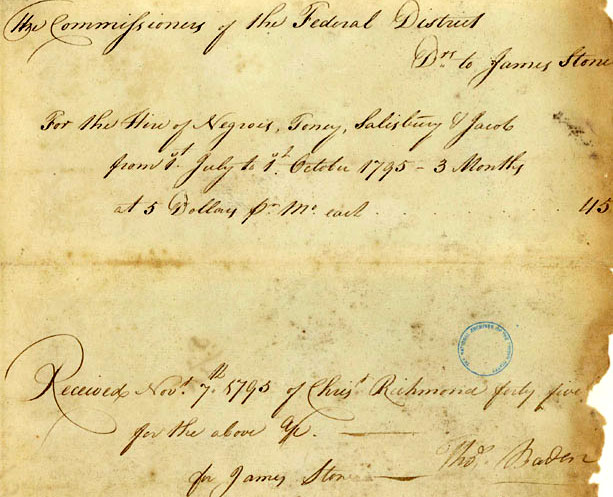 The Commissioners of the Federal District
Drs to James Stone
For the Hire of Negroes, Toney, Salisbury & Jacob
from 1st July to 1st October 1795 - 3 Months
at 5 Dollars pr Mo each 45
Received Novr 7th 1795 of Christ Richmond forty five
for the above
Thos. Baden
for James Stone